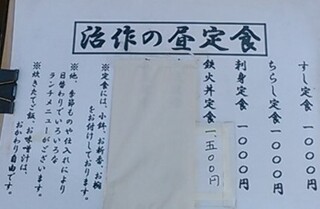 治作の昼定食
すし定食 一〇〇〇円
ちらし定食 一〇〇〇円
刺身定食 一〇〇〇円
鉄火丼定食 一、五〇〇円
※定食には、小鉢、お新香、お椀
をお付けしております。
※他、季節ものや仕入れにより
日替わりでいろいろな
ランチメニューがございます。
※炊きたてご飯、お味噌汁は、
おかわり自由です。